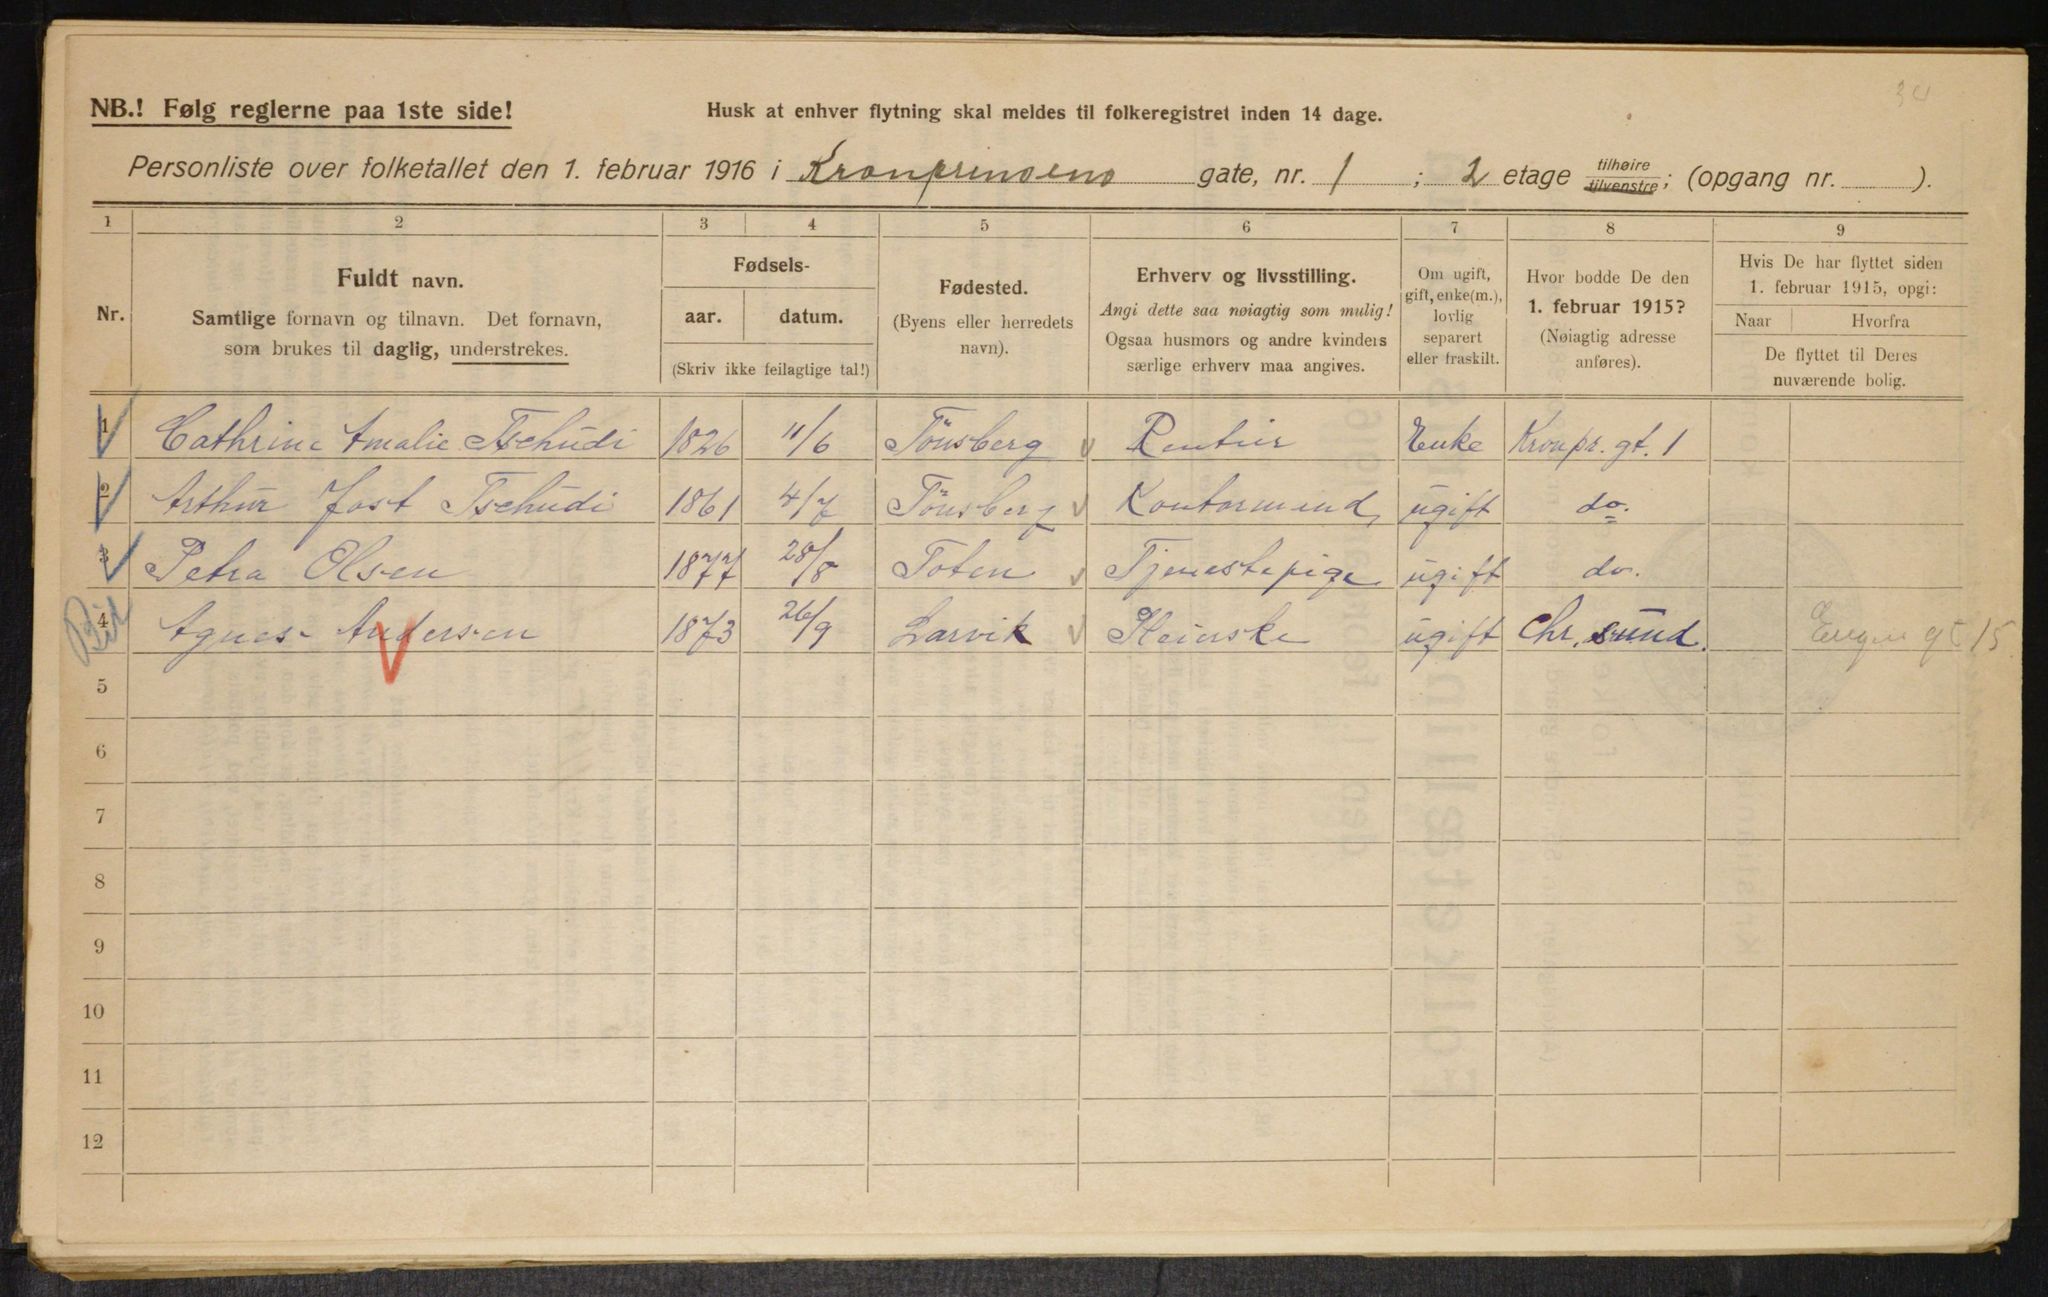 NB.! Følg reglerne paa 1ste side!
Husk at enhver flytning skal meldes til folkeregistret inden 14 dage.
Personliste over folketallet den 1. februar 1916 i Kronprinsens gate, nr. 1 ; 2 etage tilhøire tilvenstre; (opgang nr. ).
1 2 3 4 5 6 7 8 9
Nr.
Fuldt navn.
Samtlige fornavn og tilnavn. Det fornavn,
som brukes til daglig, understrekes.
Fødsels-
aar. datum.
(Skriv ikke feilagtige tal!)
Fødested.
(Byens eller herredets
navn).
Erhverv og livsstilling.
Angi dette saa nøiagtig som mulig!
Ogsaa husmors og andre kvinders
særlige erhverv maa angives.
Om ugift,
gift, enke(m.),
lovlig
separert
eller fraskilt.
Hvor bodde De den
1. februar 1915?
(Nøiagtig adresse
anføres).
Hvis De har flyttet siden
1. februar 1915, opgi:
Naar Hvorfra
De flyttet til Deres
nuværende bolig.
1 Cathrine Amalie Tschüdi 1826 11/6 Tönsberg Rentier Enke Kronpr. gt. 1
2 Arthur Jost Tschüdi 1861 4/7 Tönsberg Kontormand, ugift do.
3 Petra Olsen 1877 28/8 Toten Tjenestepige ugift do.
4 Agnes Andersen 1873 26/9 Larvik Pleierske ugift Chr. sund. gt 15
5
6
7
8
9
10
11
12